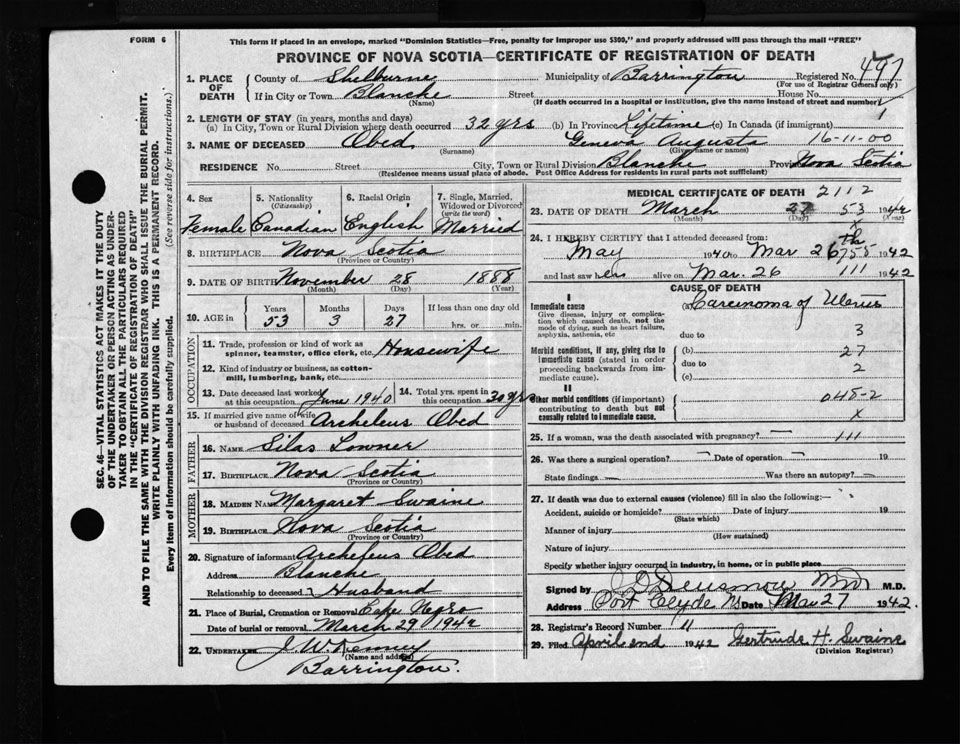 FORM 6
This form if placed in an envelope, marked "Dominion Statistics—Free, penalty for improper use $300," and properly addressed will pass through the mail "FREE"
PROVINCE OF NOVA SCOTIA—CERTIFICATE OF REGISTRATION OF DEATH
1. PLACE OF DEATH { County of Shelburne Municipality of Barrington Registered No. 497
(For use of Registrar General only)
If in City or Town Blanche Street House No.
(Name) (If death occurred in a hospital or institution, give the name instead of street and number)
2. LENGTH OF STAY (in years, months and days)
(a) In City, Town or Rural Division where death occurred 32 yrs (b) In Province Lifetime (c) In Canada (if immigrant)
3. NAME OF DECEASED Obed Geneva Augusta 16-11-00
(Surname) (Given name or names)
RESIDENCE No. Street City, Town or Rural Division Blanche Province Nova Scotia
(Residence means usual place of abode. Post Office Address for residents in rural parts not sufficient)
SEC. 46—VITAL STATISTICS ACT MAKES IT THE DUTY
OF THE UNDERTAKER OR PERSON ACTING AS UNDER-
TAKER TO OBTAIN ALL THE PARTICULARS REQUIRED
IN THE "CERTIFICATE OF REGISTRATION OF DEATH"
AND TO FILE THE SAME WITH THE DIVISION REGISTRAR WHO SHALL ISSUE THE BURIAL PERMIT.
WRITE PLAINLY WITH UNFADING INK. THIS IS A PERMANENT RECORD.
Every item of information should be carefully supplied. (See reverse side for instructions.)
4. Sex 5. Nationality (Citizenship) 6. Racial Origin 7. Single, Married, Widowed or Divorced (write the word)
Female Canadian English Married
8. BIRTHPLACE Nova Scotia
(Province or Country)
9. DATE OF BIRTH November 28 1888
(Month) (Day) (Year)
10. AGE in Years Months Days If less than one day old
53 3 27 hrs. or min.
OCCUPATION
11. Trade, profession or kind of work as spinner, teamster, office clerk, etc. Housewife
12. Kind of industry or business, as cotton-mill, lumbering, bank, etc.
13. Date deceased last worked at this occupation June 1940 14. Total yrs. spent in this occupation 30 yrs
15. If married give name of wife or husband of deceased Archeleus Obed
FATHER
16. NAME Silas Lowner
17. BIRTHPLACE Nova Scotia
(Province or Country)
MOTHER
18. MAIDEN NAME Margaret Swaine
19. BIRTHPLACE Nova Scotia
(Province or Country)
20. Signature of informant Archeleus Obed
Address Blanche
Relationship to deceased Husband
21. Place of Burial, Cremation or Removal Cape Negro
Date of burial or removal March 29 1942
22. UNDERTAKER J. W. Kenney
(Name and address)
Barrington.
MEDICAL CERTIFICATE OF DEATH 2112
23. DATE OF DEATH March 27 53 1942
(Month) (Day) (Year)
24. I HEREBY CERTIFY that I attended deceased from:
May 1940 to Mar 26th 1942
and last saw her alive on Mar. 26 111 1942
CAUSE OF DEATH
I
Immediate cause
Give disease, injury or complication which caused death, not the mode of dying, such as heart failure, asphyxia, asthenia, etc
(a) Carcinoma of Uterus
due to 3
Morbid conditions, if any, giving rise to immediate cause (stated in order proceeding backwards from immediate cause).
(b) 27
due to 2
(c)
II
Other morbid conditions (if important) contributing to death but not causally related to immediate cause.
048-2
x
25. If a woman, was the death associated with pregnancy? — 111
26. Was there a surgical operation? — Date of operation — 19
State findings Was there an autopsy? —
27. If death was due to external causes (violence) fill in also the following:—
Accident, suicide or homicide? Date of injury 19
(State which)
Manner of injury
(How sustained)
Nature of injury
Specify whether injury occurred in industry, in home, or in public place
Signed by M.D.
Address Port Clyde NS Date Mar 27 1942.
28. Registrar's Record Number 11
29. Filed April 2nd 1942 Gertrude H. Swaine
(Division Registrar)